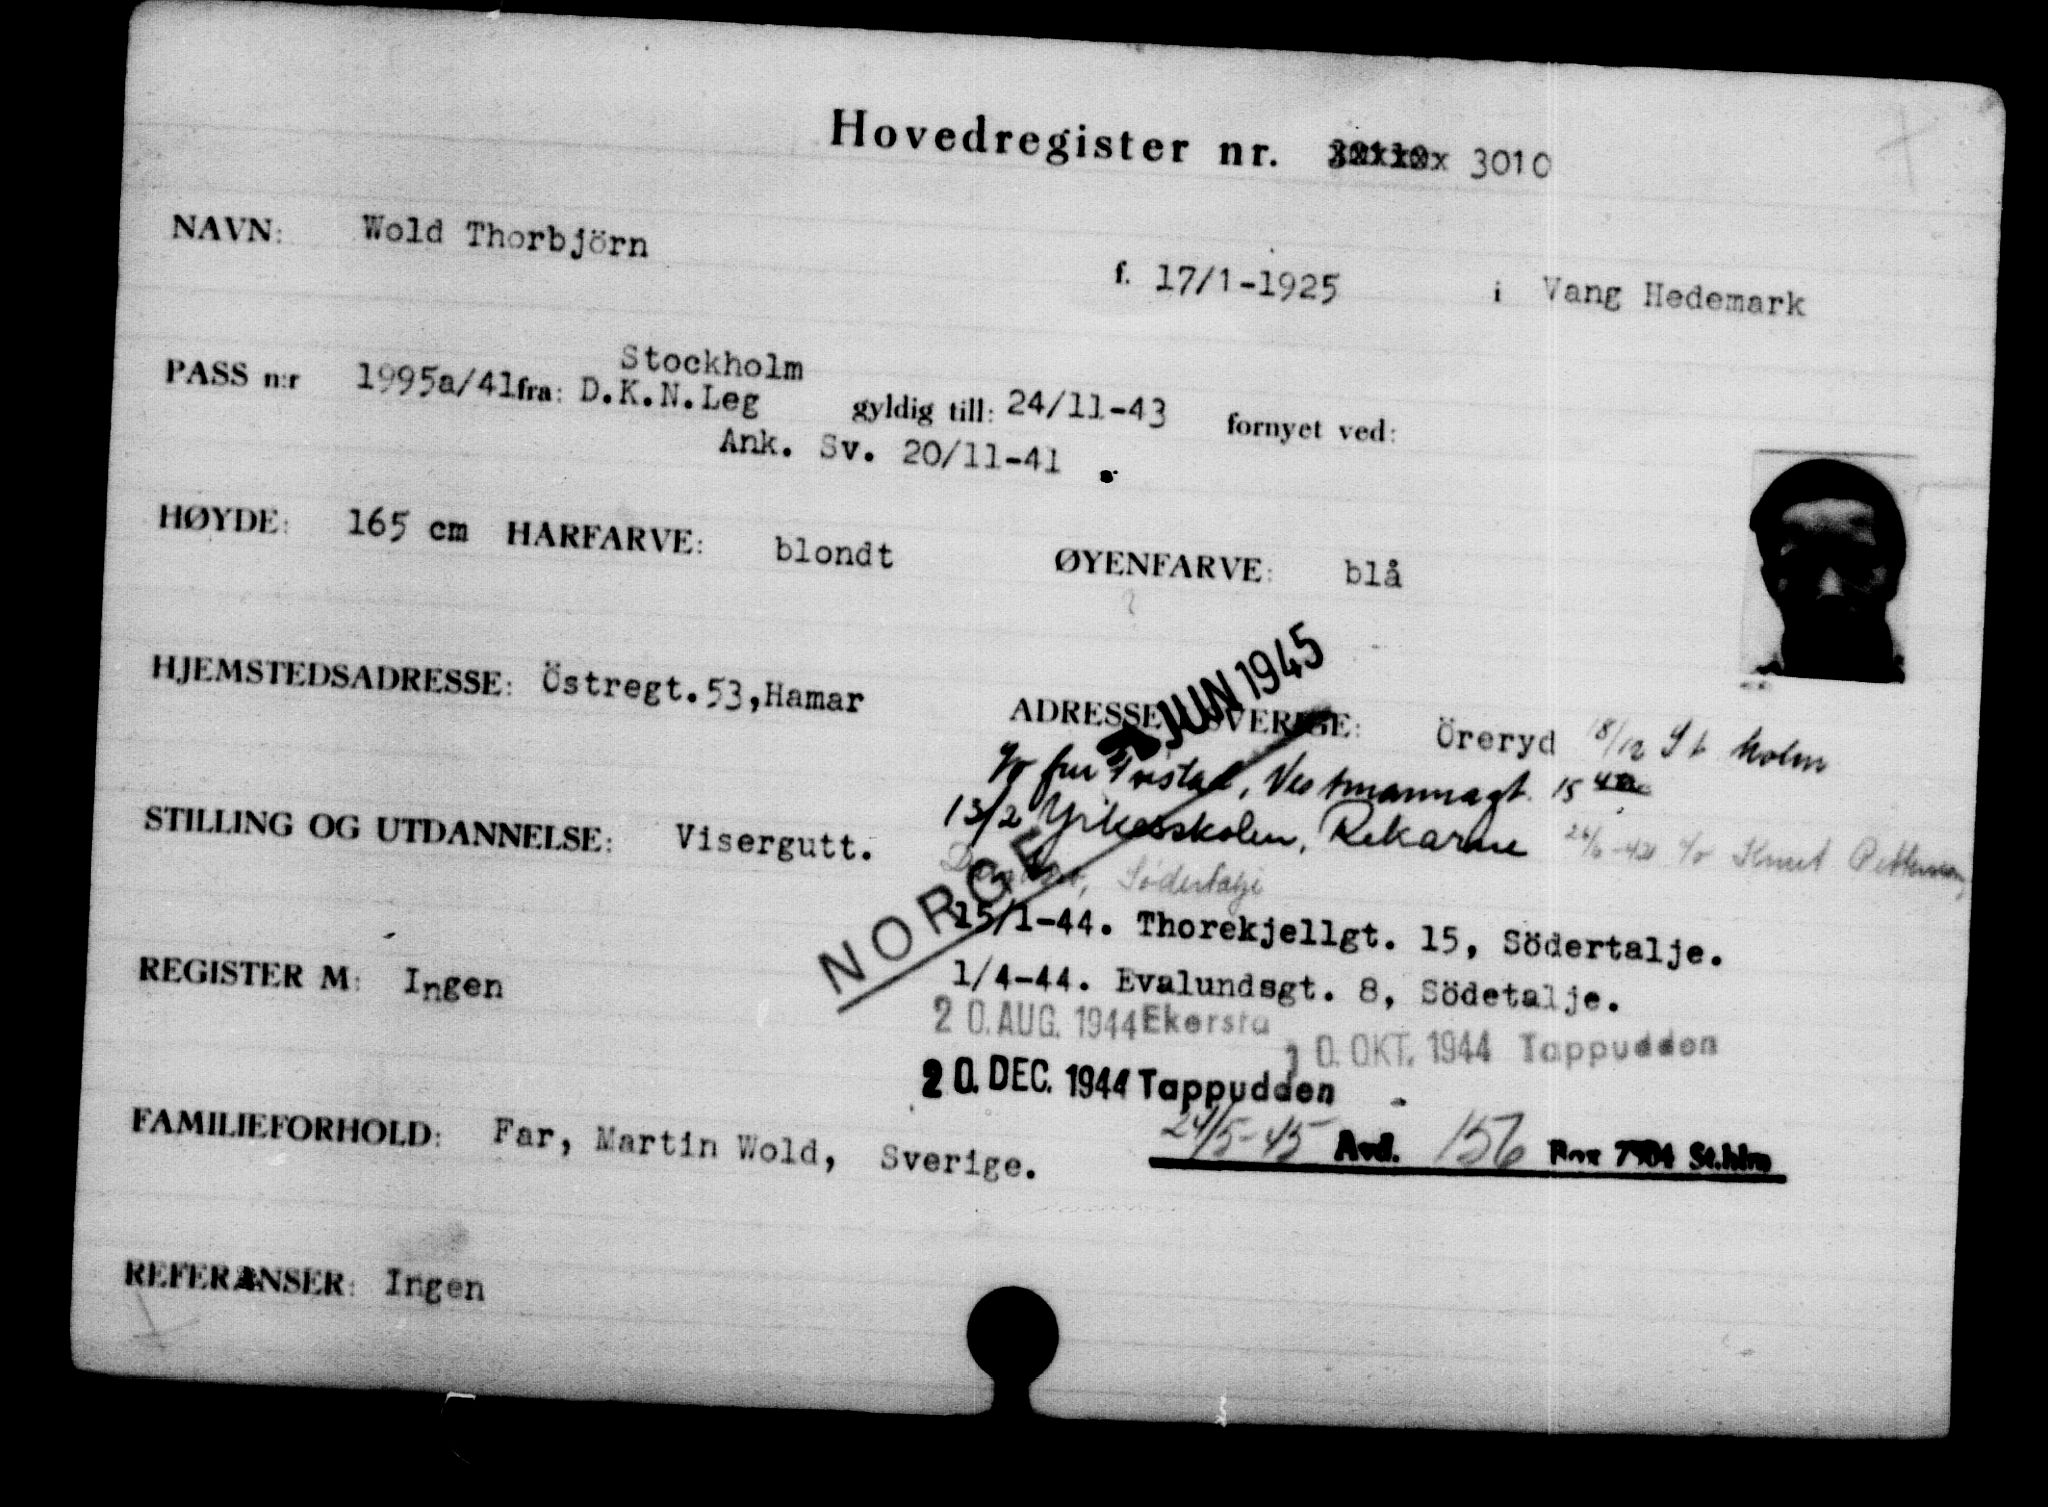 Hovedregister nr. 3010
NAVN: Wold Thorbjörn
f. 17/1-1925 i Vang Hedemark
Stockholm
PASS n:r 1995a/41 fra: D.K.N.Leg gyldig till: 24/11-43 fornyet ved:
Ank. Sv. 20/11-41
HØYDE: 165 cm HARFARVE: blondt ØYENFARVE: blå
JUN 1945
HJEMSTEDSADRESSE: Östregt.53,Hamar
ADRESSE I SVERIGE: Öreryd 18/12 St holm
c/o fru Vestmannagt. 15
13/2 Yrkesskolen, Rekarne 26/6-42 c/o Knut
STILLING OG UTDANNELSE: Visergutt.
Södertalje
NORGE
15/1-44. Thorekjellgt. 15, Södertalje.
REGISTER M: Ingen
1/4-44. Evalundsgt. 8, Södetalje.
20. AUG. 1944 Ekersta
10. OKT. 1944 Tappudden
20. DEC. 1944 Tappudden
FAMILIEFORHOLD: Far, Martin Wold, Sverige.
24/5-45 Avd. 156 Box 7904 St.hlm
REFERANSER: Ingen